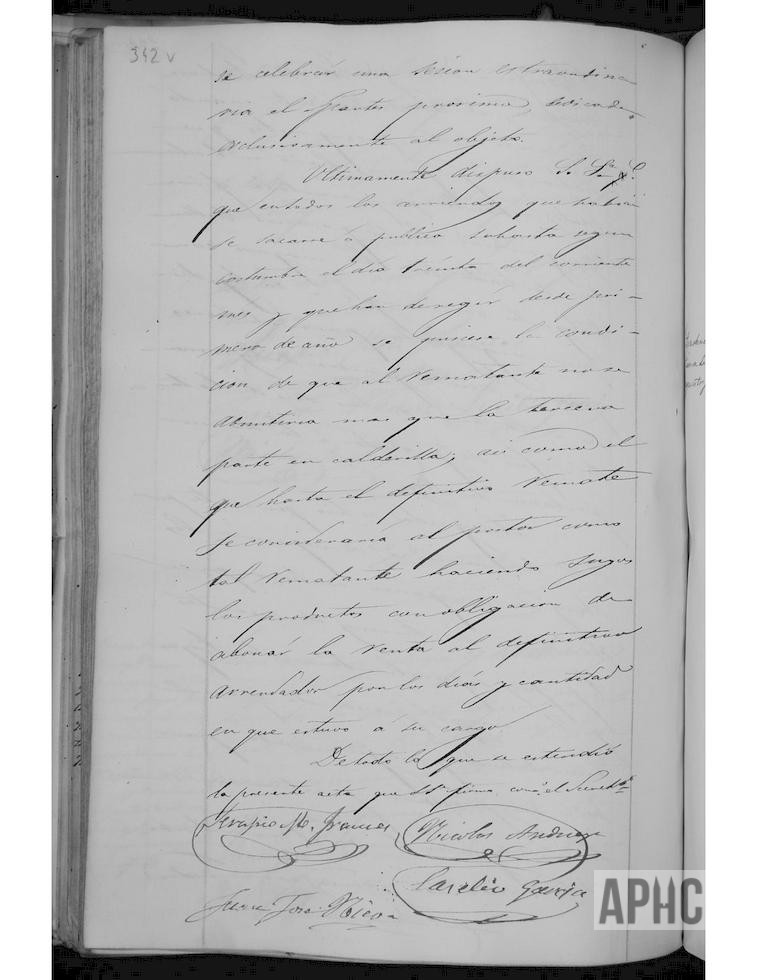 342 v
se celebrar una sesion estraordina
ria el Martes procsimo, dedicada
exclusivamente al objeto.
Ultimamente dispuso S. Sria
que en todos los arriendos que habian
se sacarse á publica subasta segun
costumbre el dia treinta del corriente
mes y que han de regir desde pri-
mero de año se pusiese la condi-
cion de que al rematante no se
admitiria mas que la tercera
parte en calderilla, asi como el
que hasta el definitivo remate
se consideraria al postor como
tal rematante haciendo suyos
los productos con obligacion de
abonar la renta al definitivo
arrendador por los dias y cantidad
en que estuvo á su cargo
De todo lo que se estendió
la presente acta que SSs firma con el Secret.º
Serapio M. Frances
Nicolas Andres
Juan Jose
Garcia
APHC